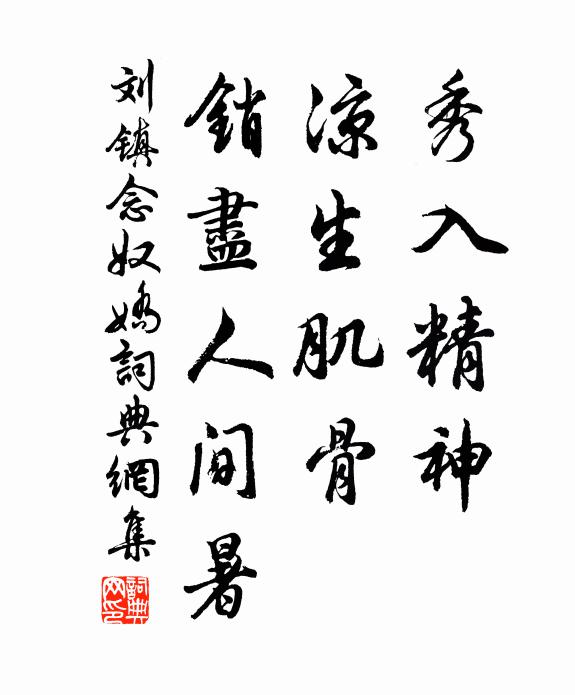 秀入精神
凉生肌骨
銷盡人间暑
刘镇念奴嬌詞典網集
詞典
网印